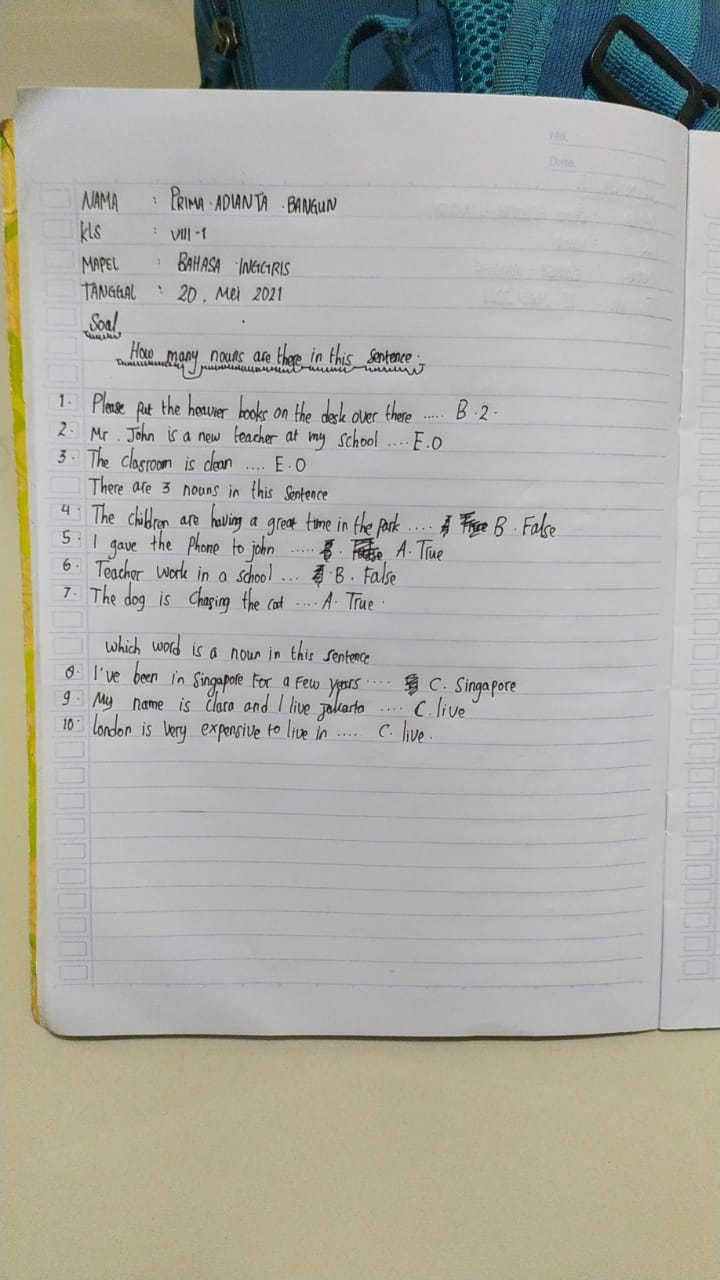 No.
Date.
NAMA : PRIMA ADIANTA BANGUN
KLS : VIII-1
MAPEL : BAHASA INGGRIS
TANGGAL : 20, Mei 2021
Soal
How many nouns are there in this sentence.
1. Please put the heavier books on the desk over there ..... B. 2.
2. Mr. John is a new teacher at my school .... E.0
3. The clasroom is clean .... E.0
There are 3 nouns in this sentence
4. The children are having a great time in the park .... B. False
5. I gave the Phone to john ..... A. True
6. Teacher work in a school ... B. False
7. The dog is chasing the cat .... A. True.
which word is a noun in this sentence
8. I've been in Singapore For a Few years .... C. Singapore
9. My name is Clara and I live jakarta .... C. live
10. London is very expensive to live in .... C. live.